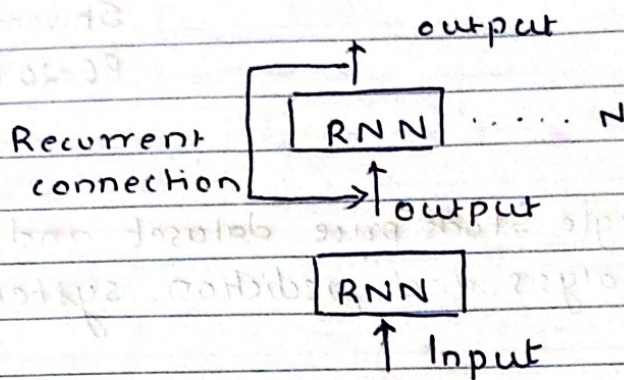 output
RNN ..... N
Recurrent
connection
output
RNN
Input